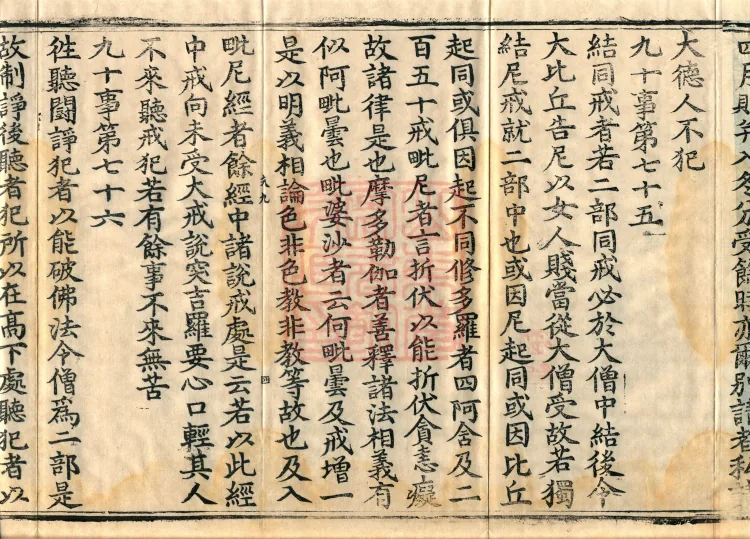 大德人不犯
九十事第七十五
結同戒者若二部同戒必於大僧中結後令
大比丘告尼以女人賤當從大僧受故若獨
結尼戒就二部中也或因尼起同或因比丘
起同或俱因起不同修多羅者四阿舍及二
百五十戒毗尼者言折伏以能折伏貪恚癡
故諸律是也摩多勒伽者善釋諸法相義有
似阿毗曇也毗婆沙者云何毗曇及戒增一
是以明義相論色非色教非教等故也及入
毗尼經者餘經中諸說戒處是云若以此經
中戒向未受大戒說突吉羅要心口輕其人
不來聽戒犯若有餘事不來無苦
九十事第七十六
往聽鬪諍犯者以能破佛法令僧爲二部是
故制諍後聽者犯所以在高下處聽犯者以